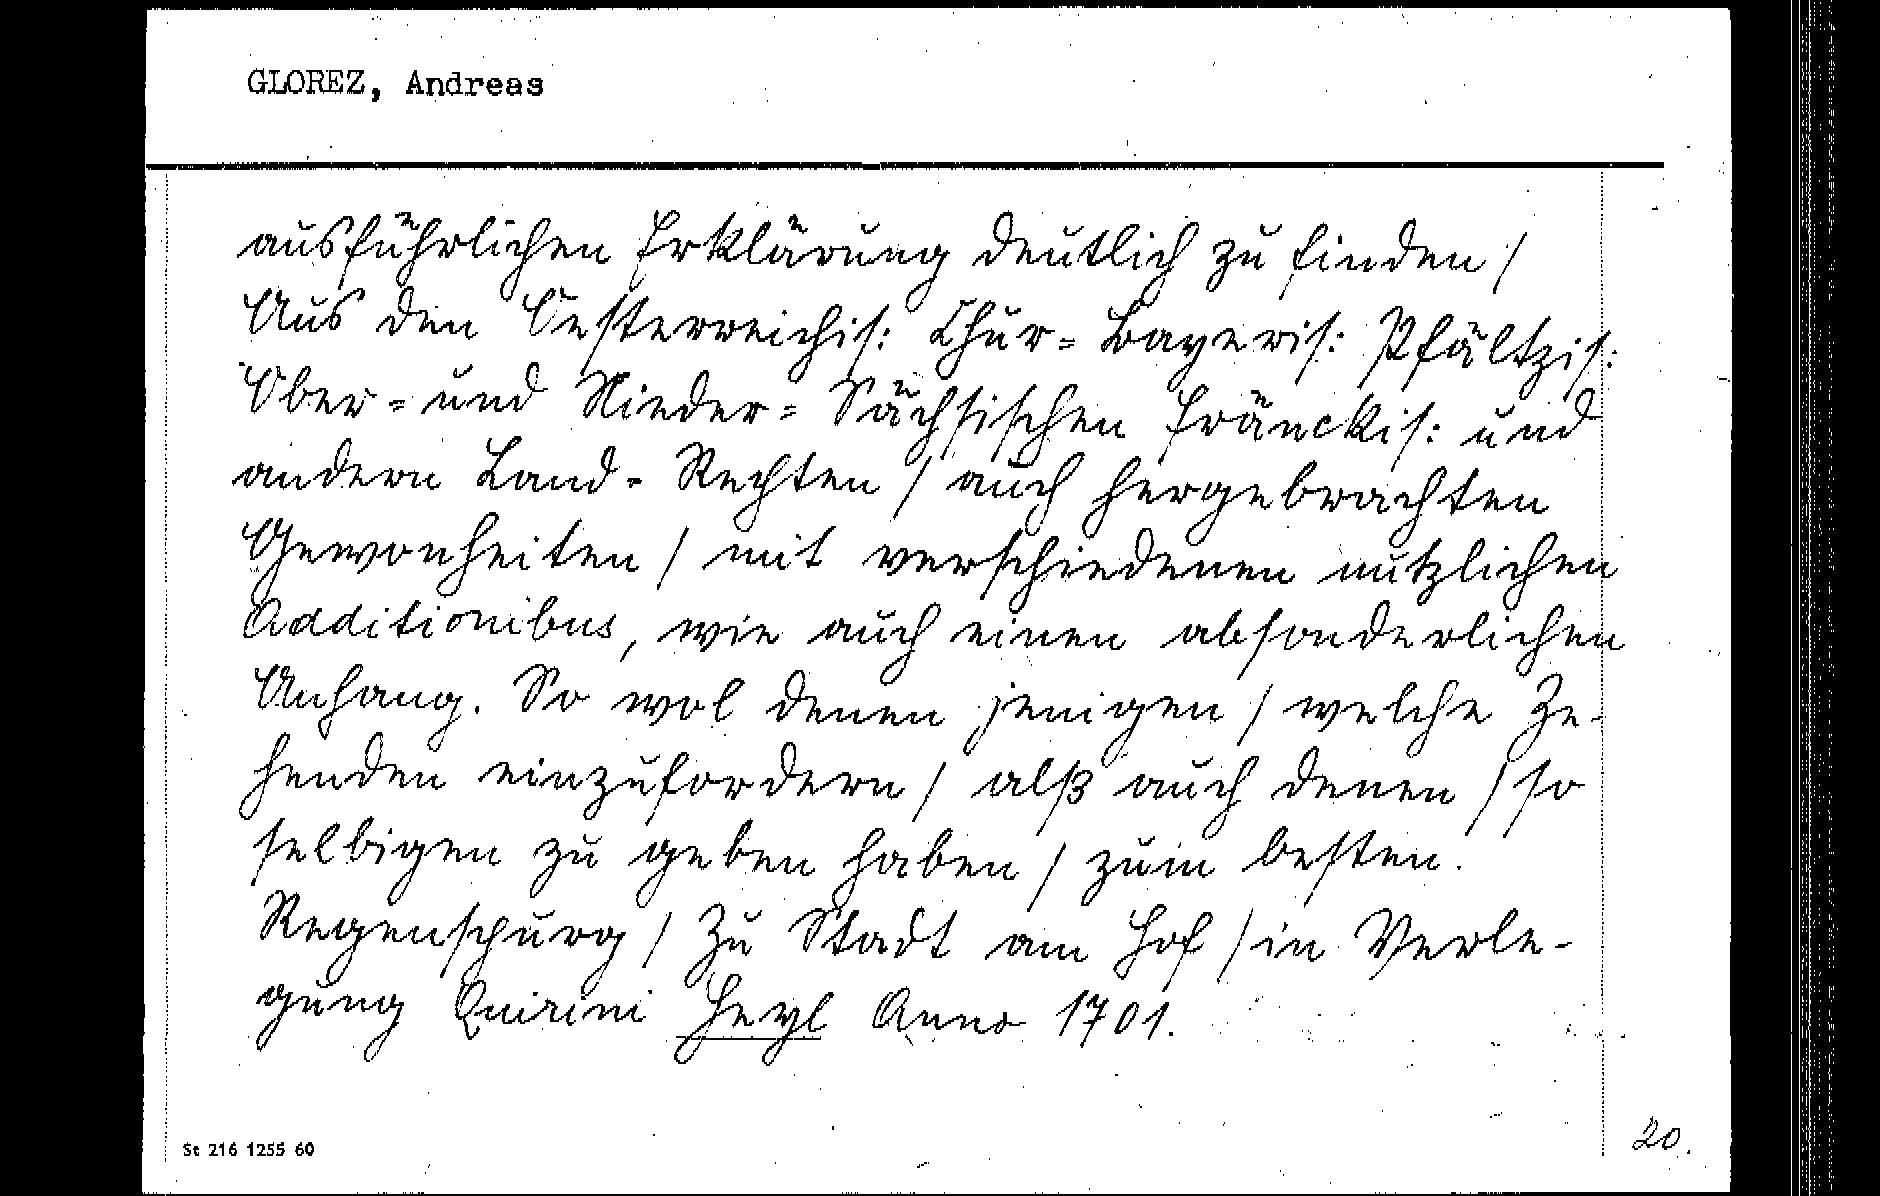 GLOREZ, Andreas
ausführlichen Erklärung deutlich zu finden /
Aus den Oesterreichis: Chur= Bayeris: Pfältzis:
Ober= und Nieder= Sächsischen Fränckis: und
andern Land= Rechten / auch hergebrachten
Gewonheiten / mit verschiedenen nutzlichen
Additionibus, wie auch einen absonderlichen
Anhang. So wol denen jenigen / welche Ze-
henden einzufordern / alß auch denen / so
selbigen zu geben haben / zum besten.
Regenspurg / Zu Stadt am Hof / in Verle-
gung Quirini Heyl Anno 1701.
St 216 1255 60
20.